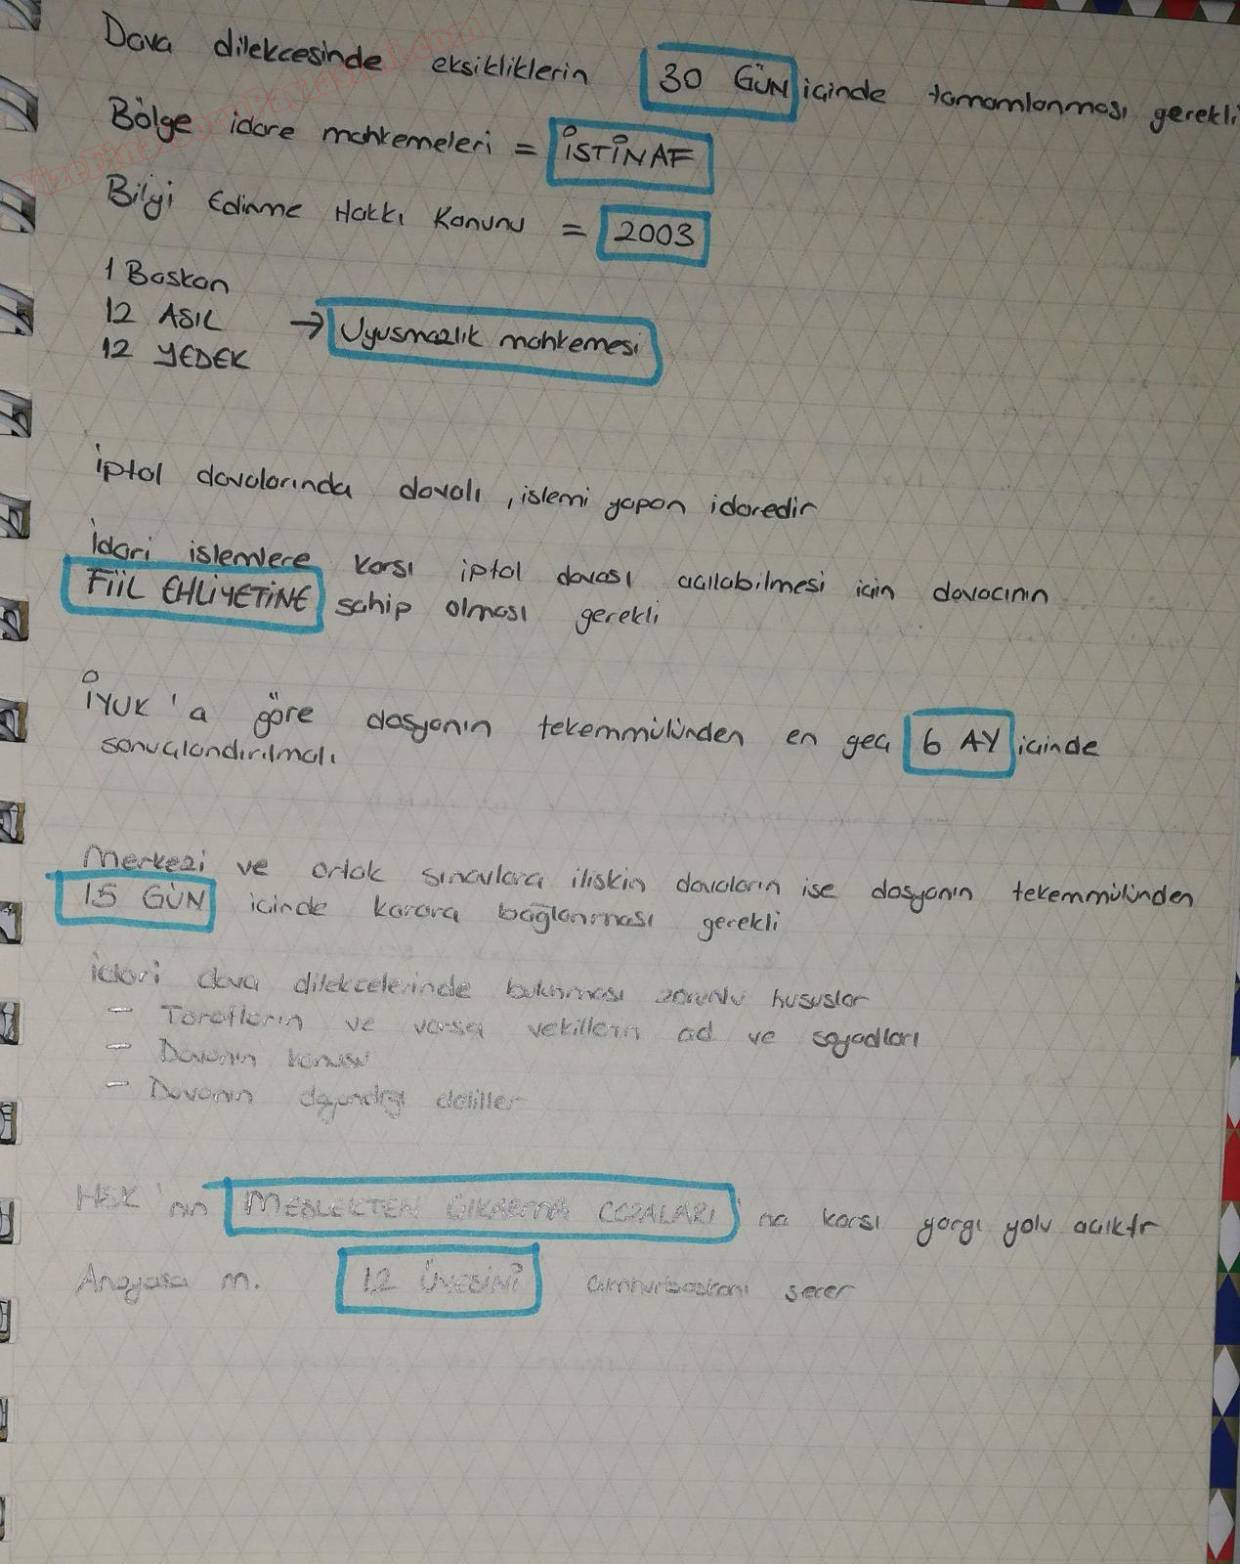 Dava dilekcesinde eksikliklerin 30 GÜN icinde tamamlanması gerekli
Bölge idare mahkemeleri = İSTİNAF
Bilgi Edinme Hakkı Kanunu = 2003
1 Baskan
12 ASIL → Uyusmazlık mahkemesi
12 YEDEK
İptal davalarında davalı, islemi yapan idaredir
İdari islemlere karsı iptal davası acılabilmesi icin davacının
FİİL EHLİYETİNE sahip olması gerekli
İYUK'a göre dosyanın tekemmülünden en gec 6 AY icinde
sonuclandırılmalı
Merkezi ve ortak sınavlara iliskin davaların ise dosyanın tekemmülünden
15 GÜN icinde karara bağlanması gerekli
İdari dava dilekcelerinde bulunması zorunlu hususlar
- Tarafların ve varsa vekillerin ad ve soyadları
- Davanın konusu
- Davanın dayandığı deliller
HSK'nın MESLEKTEN CIKARMA CEZALARI'na karsı yargı yolu acıktır
Anayasa m. 12 ÜYESİNİ Cumhurbaskanı secer